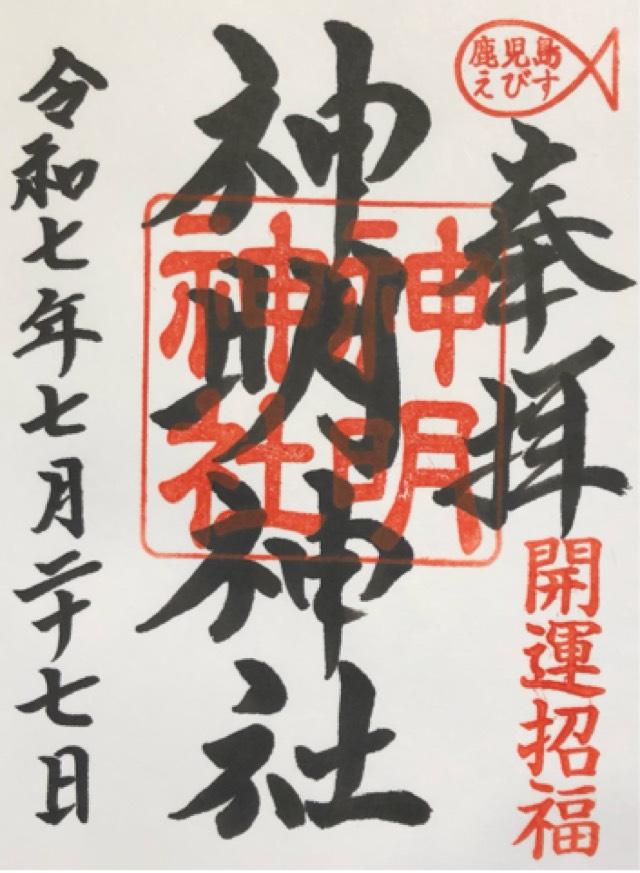 鹿児島
えびす
奉拝
開運招福
神明神社
神明
神社
令和七年七月二十七日